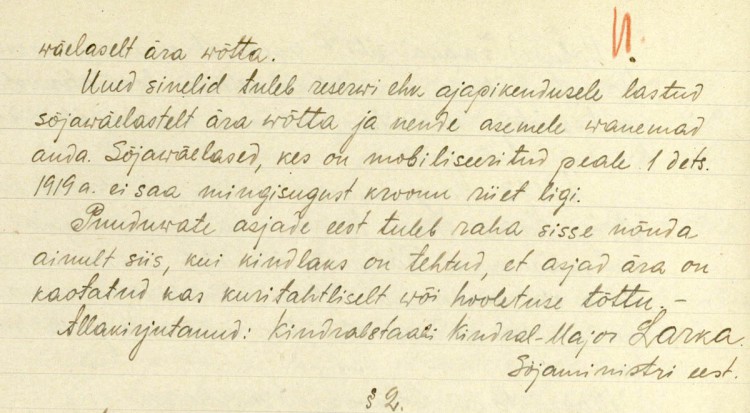 11.
wäelaselt ära wõtta.
Uued sinelid tuleb reserwi ehk ajapikendusele lastud
sõjawäelastelt ära wõtta ja nende asemele wanemad
anda. Sõjawäelased, kes on mobiliseeritud peale 1 dets.
1919 a. ei saa mingisugust kroonu riiet ligi.
Puuduwate asjade eest tuleb raha sisse nõuda
ainult siis, kui kindlaks on tehtud, et asjad ära on
kaotatud kas kuritahtliselt wõi hooletuse tõttu. –
Allakirjutanud: Kindralstaabi Kindral-Major Larka.
Sõjaministri eest.
§ 2.